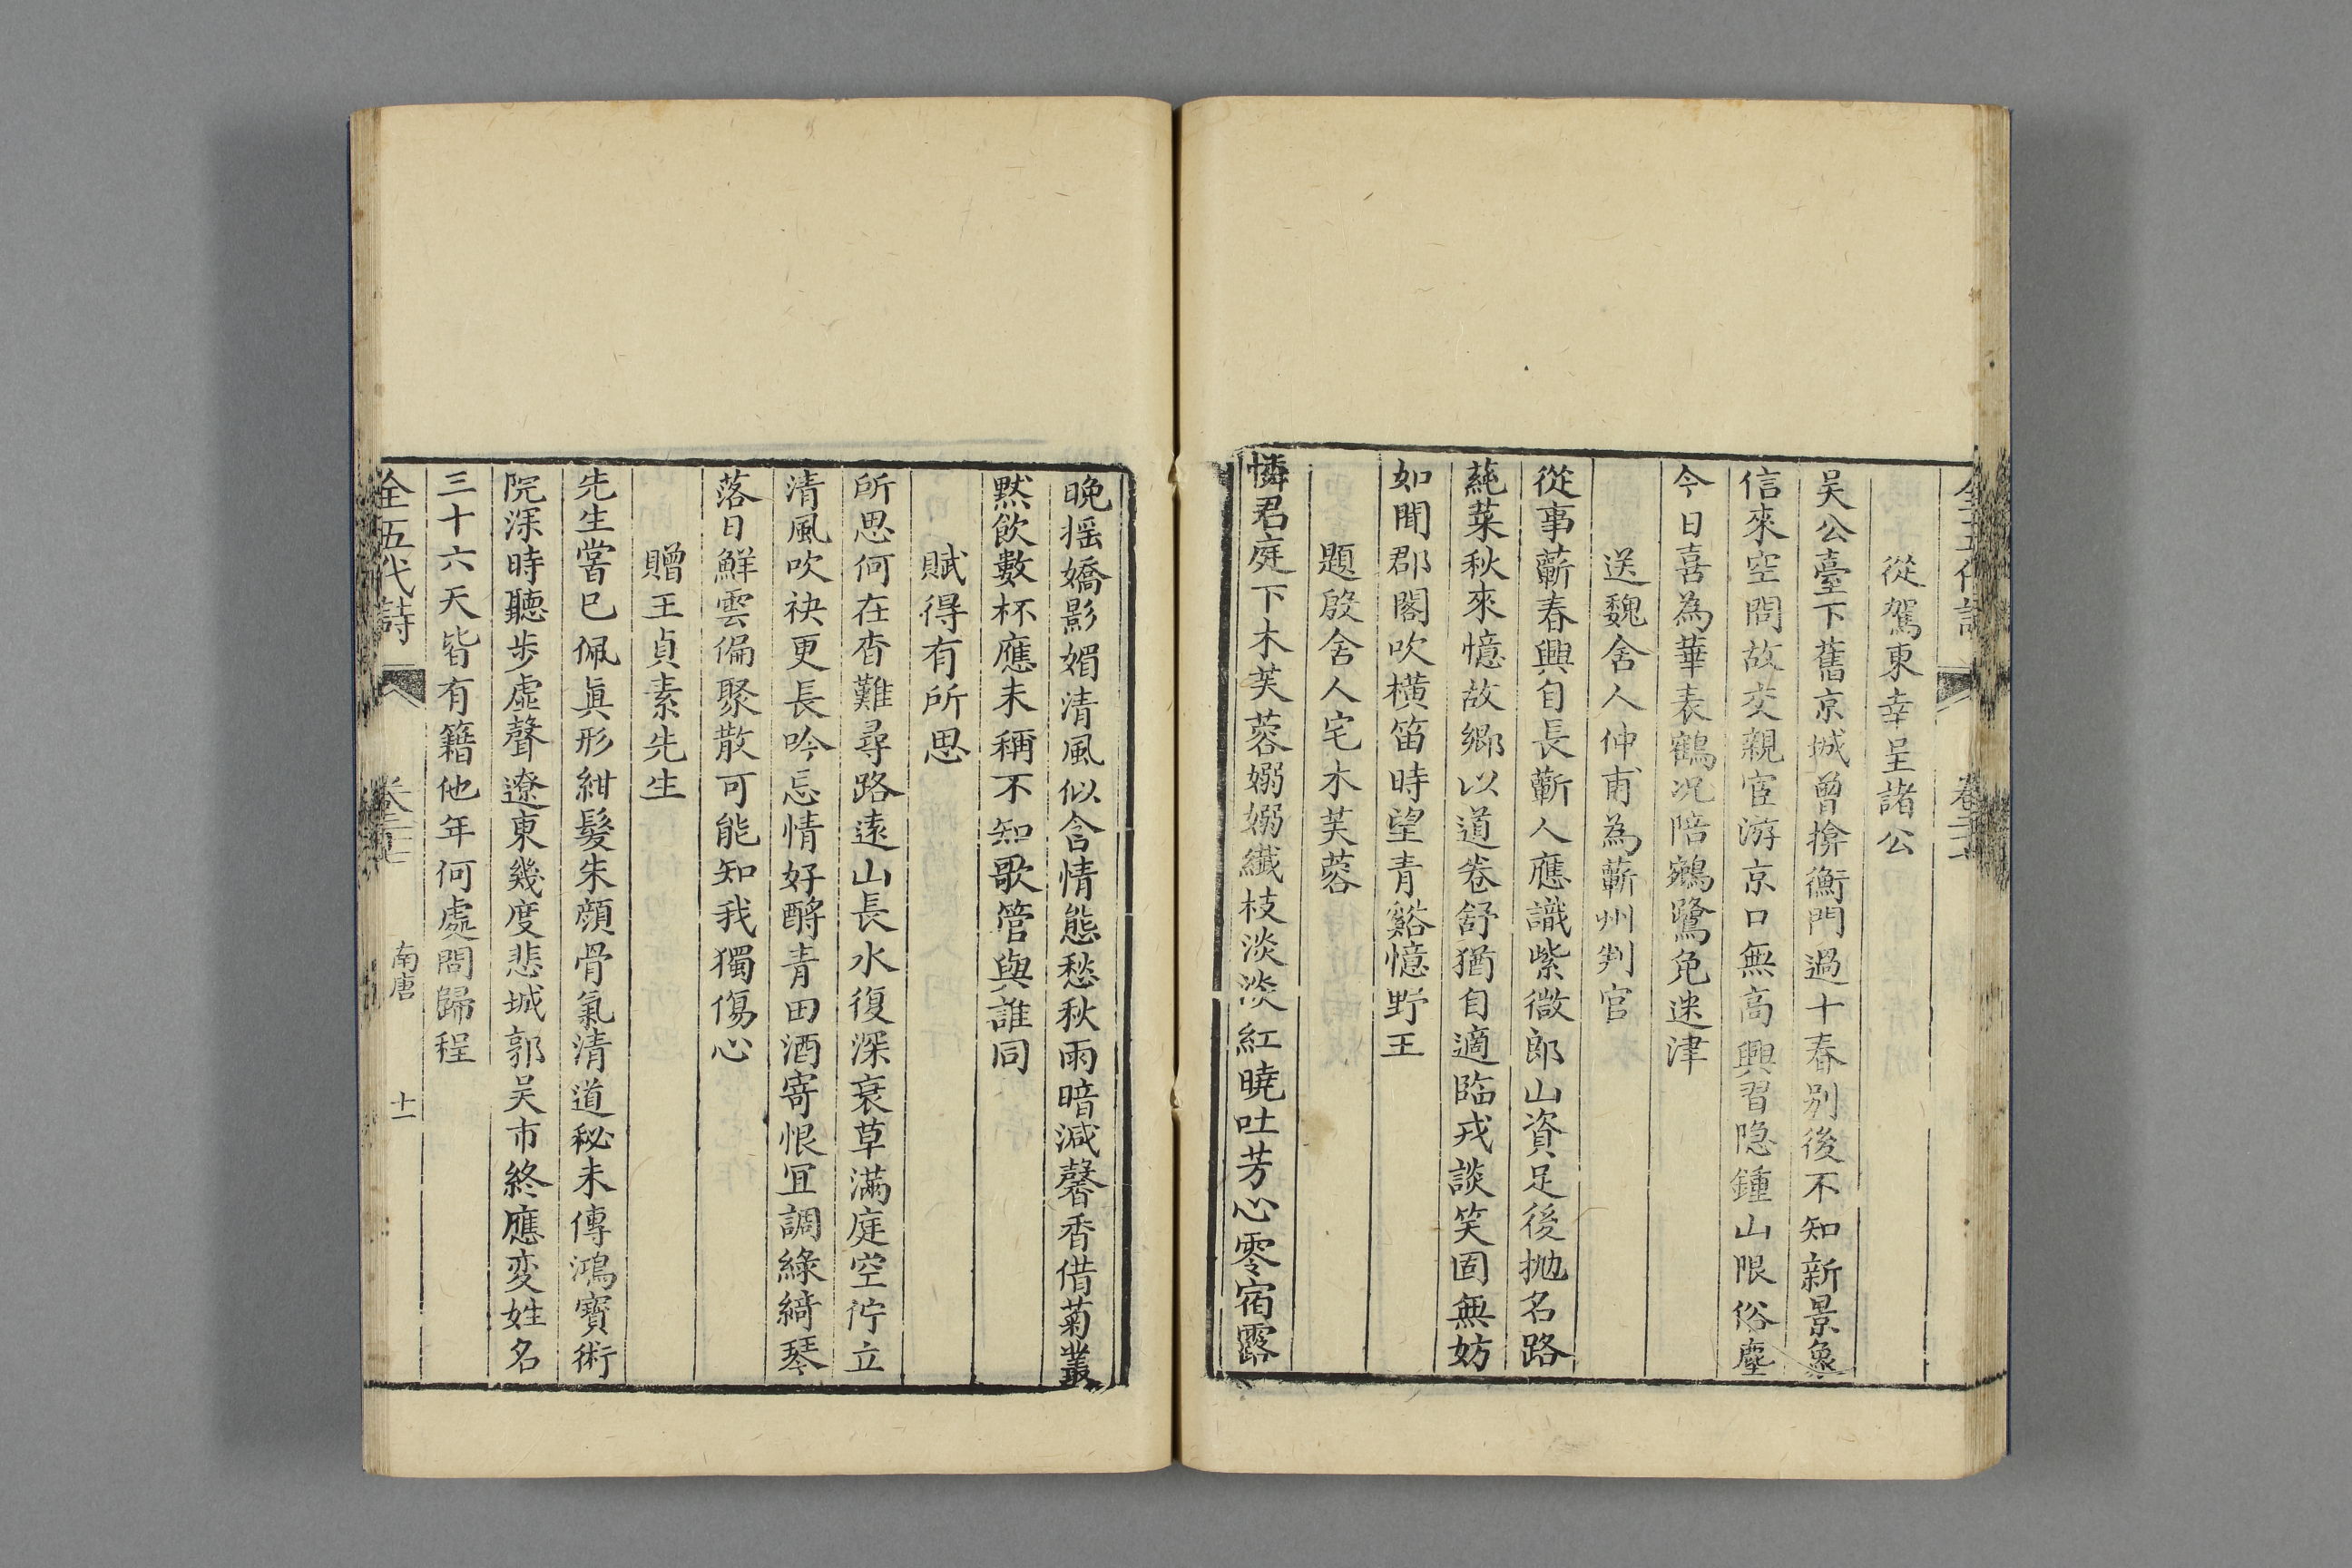 從駕東幸呈諸公
吴公臺下舊京城曾揜衡門過十春别後不知新景象
信來空問故交親宦游京口無高興習隐鍾山限俗塵
今日喜為華表鶴况陪鵷鷺免迷津
送魏舍人仲甫為蘄州判官
從事蘄春興自長蘄人應識紫微郎山資足後抛名路
蒓菜秋來憶故鄉以道卷舒猶自適臨戎談笑固無妨
如聞郡閣吹橫笛時望青谿憶野王
題殷舍人宅木芙蓉
憐君庭下木芙蓉嫋嫋纖枝淡淡紅曉吐芳心零宿露
晚摇嬌影媚清風似含情態愁秋雨暗減馨香借菊叢
默飲數杯應未稱不知歌管與誰同
賦得有所思
所思何在杳難尋路遠山長水復深衰草滿庭空佇立
清風吹袂更長吟忘情好醉青田酒寄恨宜調綠綺琴
落日鮮雲偏聚散可能知我獨傷心
贈王貞素先生
先生嘗已佩眞形紺髮朱顔骨氣清道秘未傳鴻寳術
院深時聽步虛聲遼東幾度悲城郭吴市終應变姓名
三十六天皆有籍他年何處問歸程
全五代詩 南唐 十一